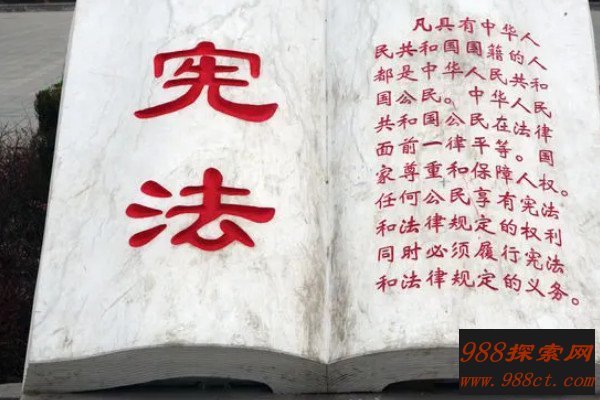 宪法
凡具有中华人
民共和国国籍的人
都是中华人民共和
国公民。中华人民
共和国公民在法律
面前一律平等。国
家尊重和保障人权。
任何公民享有宪法
和法律规定的权利
同时必须履行宪法
和法律规定的义务。
988探索网
www.988ct.com